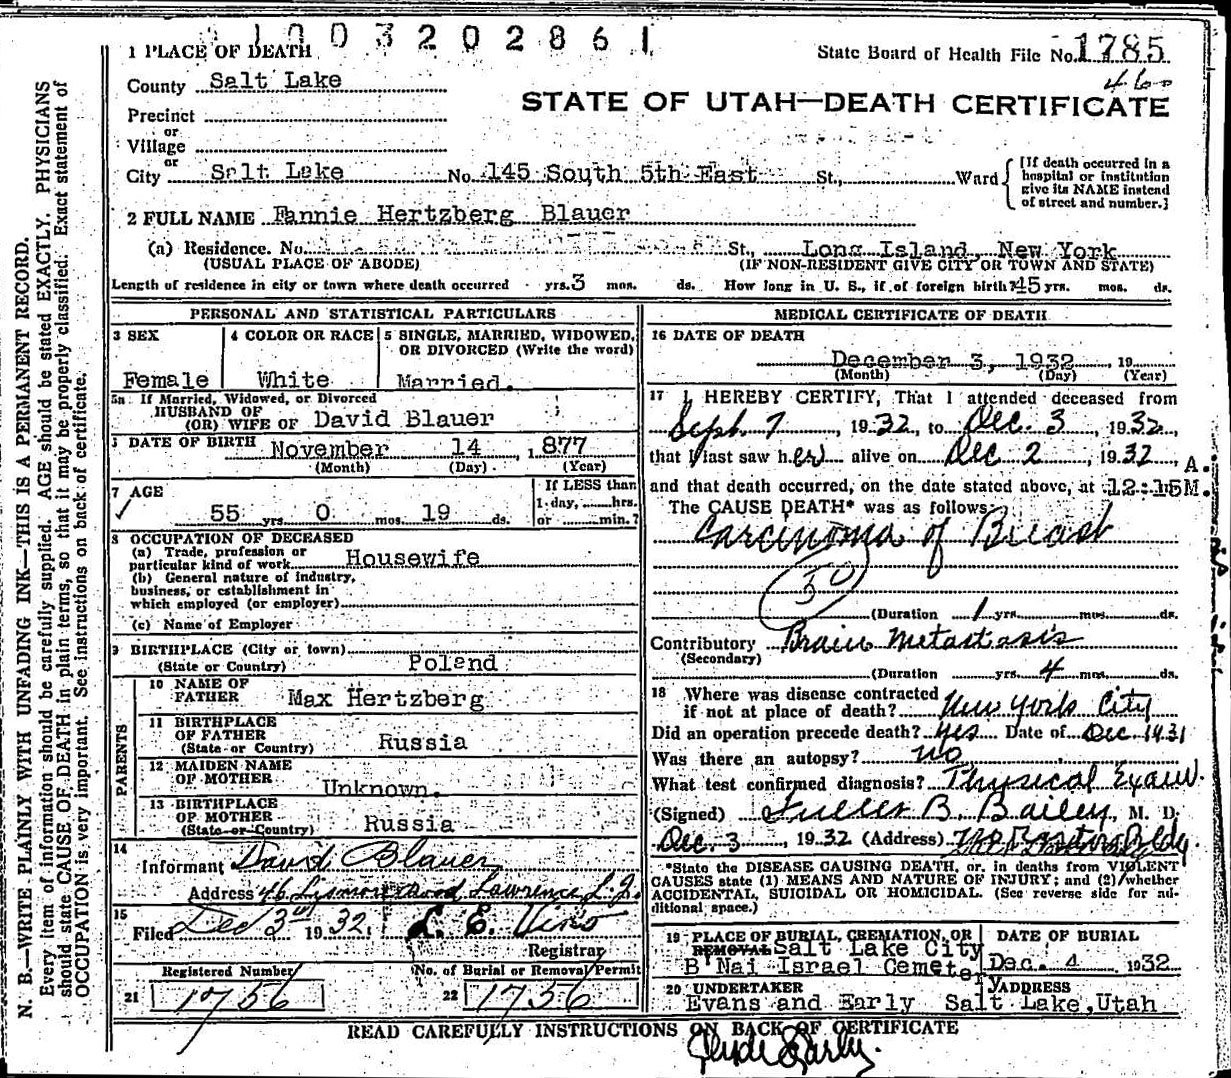 1003202861
1 PLACE OF DEATH
State Board of Health File No. 1785
County Salt Lake
460
STATE OF UTAH—DEATH CERTIFICATE
Precinct
or
Village
or
City Salt Lake No. 145 South 5th East St., Ward
[If death occurred in a hospital or institution give its NAME instead of street and number.]
2 FULL NAME Fannie Hertzberg Blauer
(a) Residence. No. St., Long Island, New York
(USUAL PLACE OF ABODE) (IF NON-RESIDENT GIVE CITY OR TOWN AND STATE)
Length of residence in city or town where death occurred yrs. 3 mos. ds. How long in U. S., if of foreign birth? 45 yrs. mos. ds.
PERSONAL AND STATISTICAL PARTICULARS
3 SEX 4 COLOR OR RACE 5 SINGLE, MARRIED, WIDOWED, OR DIVORCED (Write the word)
Female White Married.
5a If Married, Widowed, or Divorced
HUSBAND OF
(OR) WIFE OF David Blauer
DATE OF BIRTH November 14, 1877
(Month) (Day) (Year)
7 AGE
If LESS than
1 day, hrs.
or min.?
55 yrs. 0 mos. 19 ds.
8 OCCUPATION OF DECEASED
(a) Trade, profession or
particular kind of work Housewife
(b) General nature of industry,
business, or establishment in
which employed (or employer)
(c) Name of Employer
9 BIRTHPLACE (City or town)
(State or Country) Poland
PARENTS
10 NAME OF
FATHER Max Hertzberg
11 BIRTHPLACE
OF FATHER
(State or Country) Russia
12 MAIDEN NAME
OF MOTHER Unknown.
13 BIRTHPLACE
OF MOTHER
(State or Country) Russia
14
Informant David Blauer
Address 46 Lawrence L. I.
15
Filed Dec 3rd 1932. L. E. Viko
Registrar
Registered Number No. of Burial or Removal Permit
21 1756 22 1756
MEDICAL CERTIFICATE OF DEATH
16 DATE OF DEATH
December 3, 1932, 19
(Month) (Day) (Year)
17 I HEREBY CERTIFY, That I attended deceased from
Sept. 7, 1932, to Dec. 3, 1932,
that I last saw her alive on Dec 2, 1932,
and that death occurred, on the date stated above, at 12:15 A. M.
The CAUSE DEATH* was as follows:
Carcinoma of Breast
50
(Duration 1 yrs. mos. ds.
Contributory Brain metastasis
(Secondary)
(Duration yrs. 4 mos. ds.
18 Where was disease contracted
if not at place of death? New York City
Did an operation precede death? Yes Date of Dec 1931
Was there an autopsy? no
What test confirmed diagnosis? Physical Exam.
(Signed) Fuller B. Bailey, M. D.
Dec. 3, 1932 (Address) Bldg.
*State the DISEASE CAUSING DEATH, or, in deaths from VIOLENT
CAUSES state (1) MEANS AND NATURE OF INJURY; and (2) whether
ACCIDENTAL, SUICIDAL OR HOMICIDAL. (See reverse side for ad-
ditional space.)
19 PLACE OF BURIAL, CREMATION, OR
REMOVAL Salt Lake City
B'Nai Israel Cemetery
DATE OF BURIAL
Dec. 4 1932
20 UNDERTAKER ADDRESS
Evans and Early Salt Lake, Utah
READ CAREFULLY INSTRUCTIONS ON BACK OF CERTIFICATE
Clyde Early.
N. B.—WRITE PLAINLY WITH UNFADING INK—THIS IS A PERMANENT RECORD.
Every item of information should be carefully supplied. AGE should be stated EXACTLY. PHYSICIANS
should state CAUSE OF DEATH in plain terms, so that it may be properly classified. Exact statement of
OCCUPATION is very important. See instructions on back of certificate.